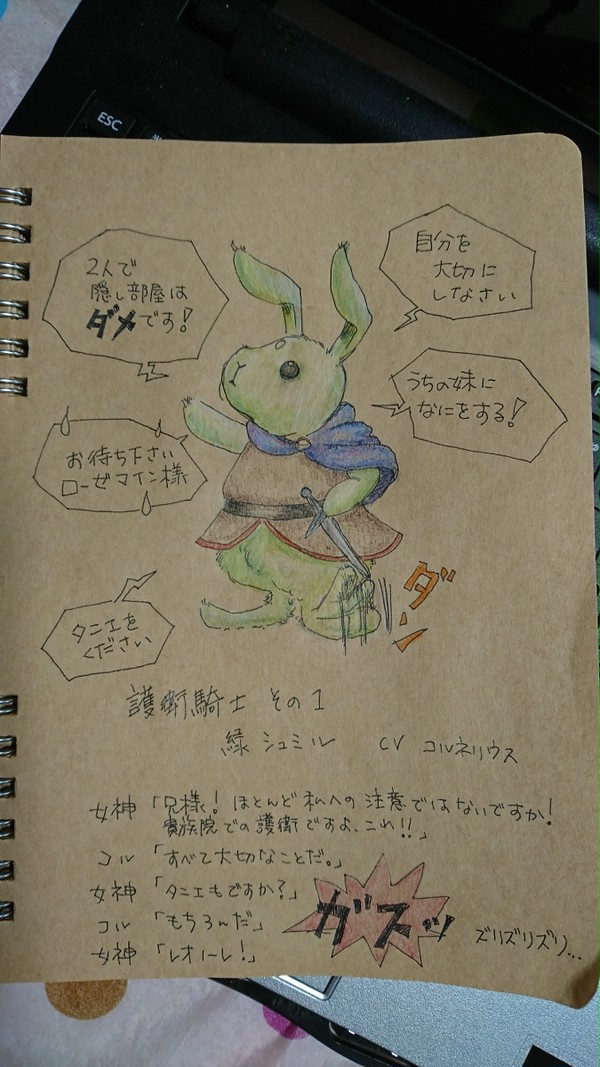 ESC
2人で
隠し部屋は
ダメです!
自分を
大切に
しなさい
うちの妹に
なにをする!
お待ち下さい
ローゼマイン様
タニエを
ください
ダン
護衛騎士 その1
緑 シュミル CV コルネリウス
女神「兄様!ほとんど私への注意ではないですか!
貴族院での護衛ですよ、これ!!」
コル「すべて大切なことだ。」
女神「タニエもですか?」
コル「もちろんだ」
女神「レオノーレ!」
ガスッ
ズリズリズリ…